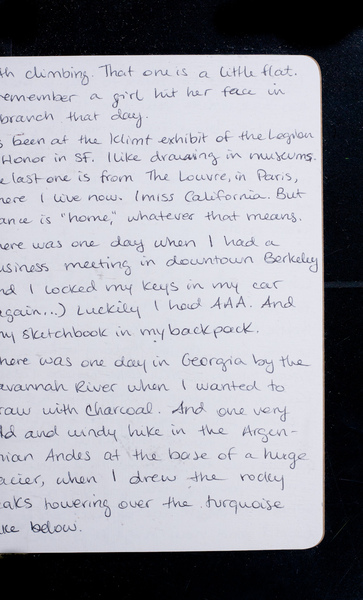 th climbing. That one is a little flat.
remember a girl hit her face in
branch that day.
s been at the Klimt exhibit of the Legion
Honor in SF. I like drawing in museums.
e last one is from The Louvre, in Paris,
here I live now. I miss California. But
ance is "home," whatever that means.
here was one day when I had a
usiness meeting in downtown Berkeley
nd I locked my keys in my car
again...) Luckily I had AAA. And
my sketchbook in my backpack.
here was one day in Georgia by the
avannah River when I wanted to
raw with charcoal. And one very
ld and windy hike in the Argen-
nian Andes at the base of a huge
acier, when I drew the rocky
aks towering over the turquoise
ke below.